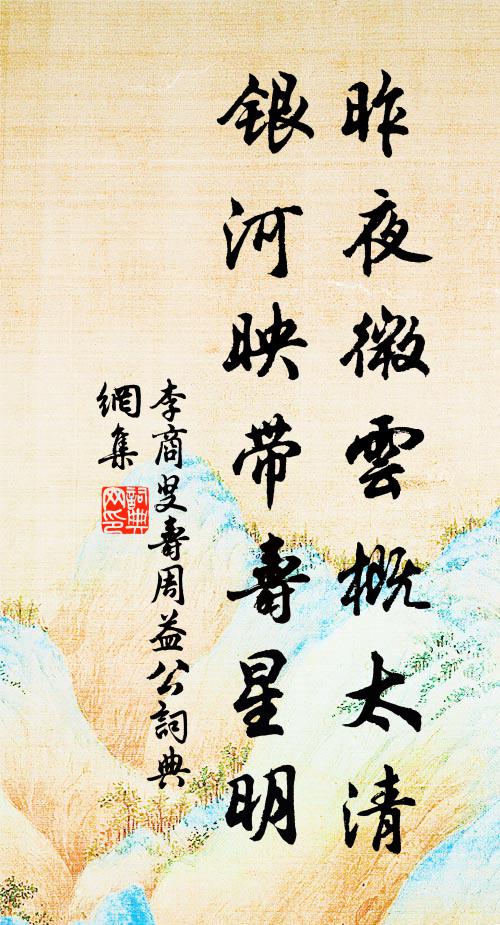 昨夜微雲概太清
銀河映帶壽星明
李商叟壽周益公詞典
網集
詞典
网印